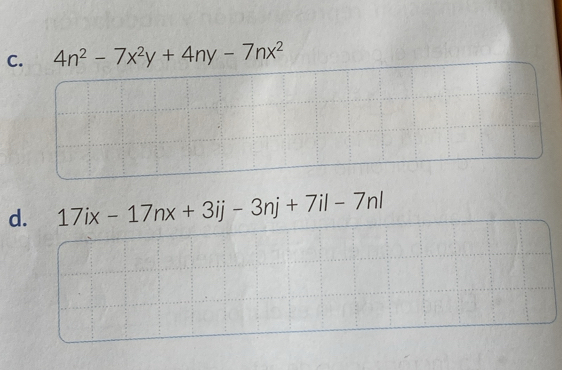 c. 4n² – 7x²y + 4ny – 7nx²
d. 17ix – 17nx + 3ij – 3nj + 7il – 7nl